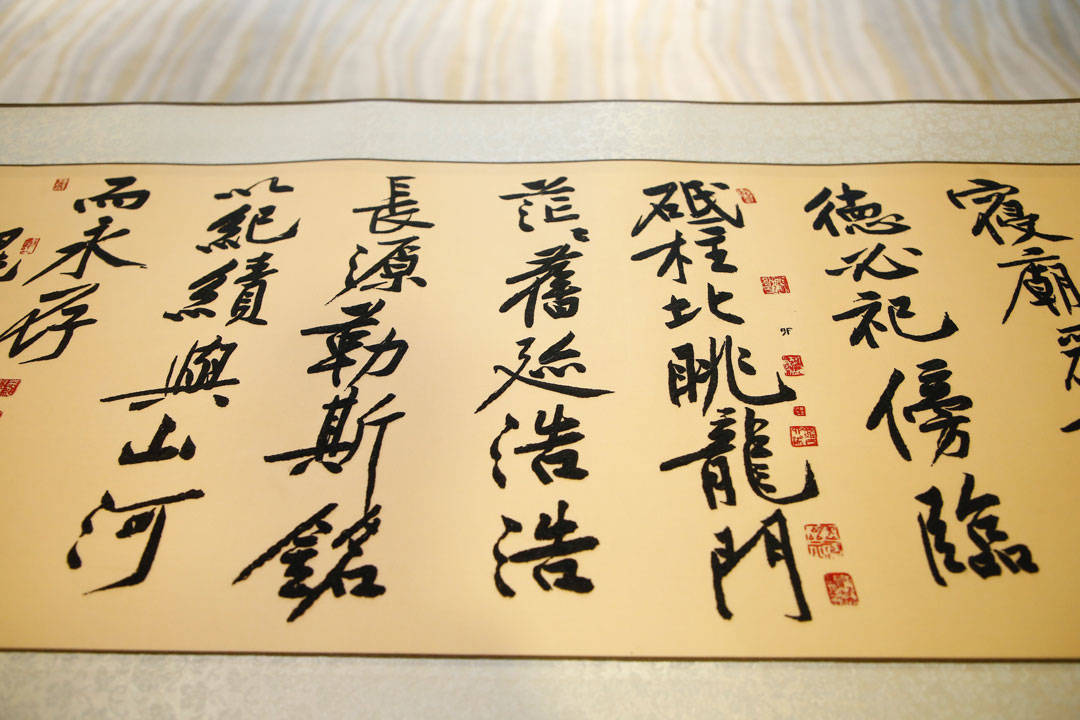 寢廟
德必祀傍臨
砥柱北眺龍門
茫〻舊迹浩浩
長源勒斯銘
以紀績與山河
而永存